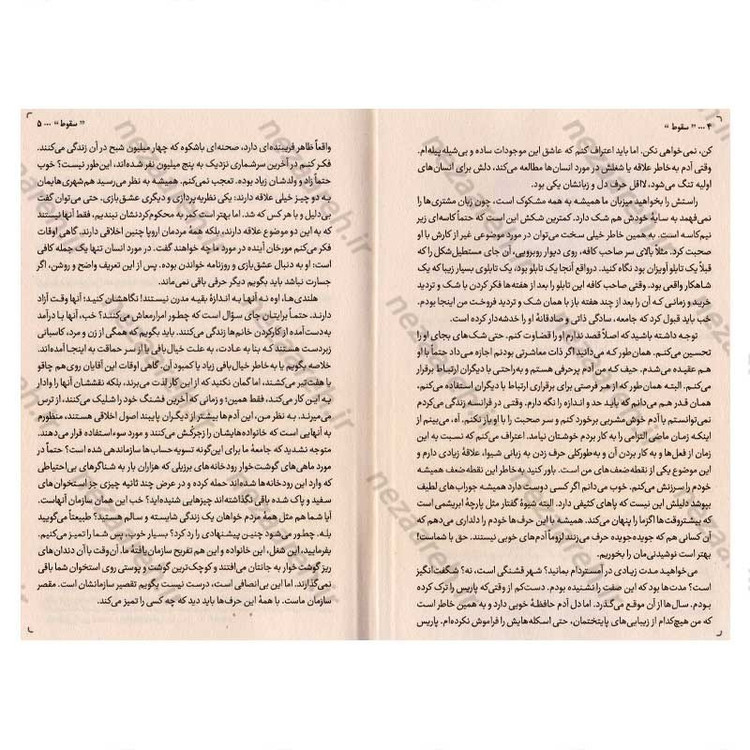 ۴ ... " سقوط "
کن، نمی‌خواهی نکن. اما باید اعتراف کنم که عاشق این موجودات ساده و بی‌شیله پیله‌ام.
وقتی آدم به خاطر علاقه یا شغلش در مورد انسان‌ها مطالعه می‌کند، دلش برای انسان‌های
اولیه تنگ می‌شود، لااقل حرف دل و زبانشان یکی بود.
راستش را بخواهید میزبان ما همیشه به همه مشکوک است، چون زبان مشتری‌ها را
نمی‌فهمد به سایهٔ خودش هم شک دارد. کمترین شکش این است که حتماً کاسه‌ای زیر
نیم‌کاسه است. به همین خاطر خیلی سخت می‌توان در مورد موضوعی غیر از کارش با او
صحبت کرد. مثلاً بالای سر صاحب کافه، روی دیوار روبرویی، آن جای مستطیل‌شکل را که
قبلاً یک تابلو آویزان بود نگاه کنید. درواقع آنجا یک تابلو بود، یک تابلوی بسیار زیبا که یک
شاهکار واقعی بود. وقتی صاحب کافه این تابلو را بعد از هفته‌ها فکر کردن با شک و تردید
خرید و زمانی که آن را بعد از چند هفته باز با همان شک و تردید فروخت من اینجا بودم.
خب باید قبول کرد که جامعه، سادگی ذاتی و صادقانهٔ او را خدشه‌دار کرده است.
توجه داشته باشید که اصلاً قصد ندارم او را قضاوت کنم. حتی شک‌های بجای او را
تحسین می‌کنم. همان‌طور که می‌دانید اگر ذات معاشرتی بودنم اجازه می‌داد حتماً با او
هم عقیده می‌شدم. حیف که من آدم پرحرفی هستم و به‌راحتی با دیگران ارتباط برقرار
می‌کنم. البته همان‌طور که از هر فرصتی برای برقراری ارتباط با دیگران استفاده می‌کنم،
همان قدر هم می‌دانم که باید حد و اندازه را نگه دارم. وقتی در فرانسه زندگی می‌کردم
نمی‌توانستم با آدم خوش‌مشربی برخورد کنم و سر صحبت را با او باز نکنم. آه، می‌بینم از
اینکه زمان ماضی التزامی را به کار بردم خوشتان نیامد. اعتراف می‌کنم که نسبت به این
زمان از فعل‌ها و به کار بردن آن و به‌طورکلی حرف زدن به زبانی شیوا، علاقهٔ زیادی دارم و
این موضوع یکی از نقطه‌ضعف‌های من است. باور کنید به خاطر این نقطه‌ضعف همیشه
خودم را سرزنش می‌کنم، خوب می‌دانم اگر کسی دوست دارد همیشه جوراب‌های لطیف
بپوشد دلیلش این نیست که پاهای کثیفی دارد. البته شیوهٔ گفتار مثل پارچهٔ ابریشمی است
که بیشتر وقت‌ها اگزما را پنهان می‌کند. همیشه با این حرف‌ها خودم را دلداری می‌دهم که
آن کسانی هم که جویده‌جویده حرف می‌زنند لزوماً آدم‌های خوبی نیستند. حق با شماست!
بهتر است نوشیدنی‌مان را بخوریم.
می‌خواهید مدت زیادی در آمستردام بمانید؟ شهر قشنگی است، نه؟ شگفت‌انگیز
است؟ مدت‌ها بود که این صفت را نشنیده بودم. دست‌کم از وقتی‌که پاریس را ترک کرده
بودم. سال‌ها از آن موقع می‌گذرد. اما دل آدم حافظهٔ خوبی دارد و به همین خاطر است
که من هیچ‌کدام از زیبایی‌های پایتختمان، حتی اسکله‌هایش را فراموش نکرده‌ام. پاریس
" سقوط " ... ۵
واقعاً ظاهر فریبنده‌ای دارد، صحنه‌ای باشکوه که چهار میلیون شبح در آن زندگی می‌کنند.
فکر کنم در آخرین سرشماری نزدیک به پنج میلیون نفر شده‌اند، این‌طور نیست؟ خوب
حتماً زاد و ولدشان زیاد بوده. تعجب نمی‌کنم. همیشه به نظر می‌رسید هم‌شهری‌هایمان
به دو چیز خیلی علاقه دارند: یکی نظریه‌پردازی و دیگری عشق‌بازی. حتی می‌توان گفت
بی‌دلیل و با هر کس که شد. اما بهتر است کمر به محکوم‌کردنشان نبندیم، فقط آنها نیستند
که به این دو موضوع علاقه دارند، بلکه همهٔ مردمان اروپا چنین اخلاقی دارند. گاهی اوقات
فکر می‌کنم مورخان آینده در مورد ما چه خواهند گفت. در مورد انسان تنها یک جمله کافی
است؛ او به دنبال عشق‌بازی و روزنامه خواندن بوده. پس از این تعریف واضح و روشن، اگر
جسارت نباشد باید بگویم دیگر حرفی باقی نمی‌ماند.
هلندی‌ها، اوه نه آنها به اندازهٔ بقیه مدرن نیستند! نگاهشان کنید: آنها وقت آزاد
دارند. حتماً برایتان جای سؤال است که چطور امرارمعاش می‌کنند؟ خب، آنها با درآمد
به‌دست‌آمده از کارکردن خانم‌ها زندگی می‌کنند. باید بگویم که همگی از زن و مرد، کاسبانی
زبردست هستند که بنا به عادت، به علت خیال‌بافی یا از سر حماقت به اینجا آمده‌اند.
خلاصه بگویم یا به خاطر خیال‌بافی زیاد یا کمبود آن. گاهی اوقات این آقایان روی هم چاقو
یا هفت‌تیر می‌کشند، اما گمان نکنید که از این کار لذت می‌برند، بلکه نقششان آنها را وادار
به این کار می‌کند، فقط همین؛ و زمانی که آخرین فشنگ خود را شلیک می‌کنند، از ترس
می‌میرند. به نظر من، این آدم‌ها بیشتر از دیگران پایبند اصول اخلاقی هستند، منظورم
به آنهایی است که خانواده‌هایشان را زجرکش می‌کنند و مورد سوءاستفاده قرار می‌دهند.
متوجه نشدید که جامعهٔ ما برای این‌گونه تسویه حساب‌ها سازماندهی شده است؟ حتماً در
مورد ماهی‌های گوشت‌خوار رودخانه‌های برزیلی که هزاران بار به شناگرهای بی‌احتیاطی
که وارد این رودخانه‌ها شده‌اند حمله کرده و در عرض چند ثانیه چیزی جز استخوان های
سفید و پاک شده باقی نگذاشته‌اند چیزهایی شنیده‌اید؟ خب این همان سازمان آنهاست.
آیا شما هم مثل همهٔ مردم خواهان یک زندگی شایسته و سالم هستید؟ طبیعتاً می‌گویید
بله. چطور می‌شود چنین پیشنهادی را رد کرد؟ بسیار خوب، پس شما را تمیز می‌کنیم.
بفرمایید، این شغل، این خانواده و این هم تفریح سازمان‌یافتهٔ ما. آن‌وقت با آن دندان‌های
ریز گوشت خوار به جانتان می‌افتند و کوچک‌ترین گوشت و پوستی روی استخوان شما باقی
نمی‌گذارند. اما این بی‌انصافی است، درست نیست بگویم تقصیر سازمانشان است. مقصر
سازمان ماست. با همهٔ این حرف‌ها باید دید که چه کسی را تمیز می‌کند.
nezaareh.ir